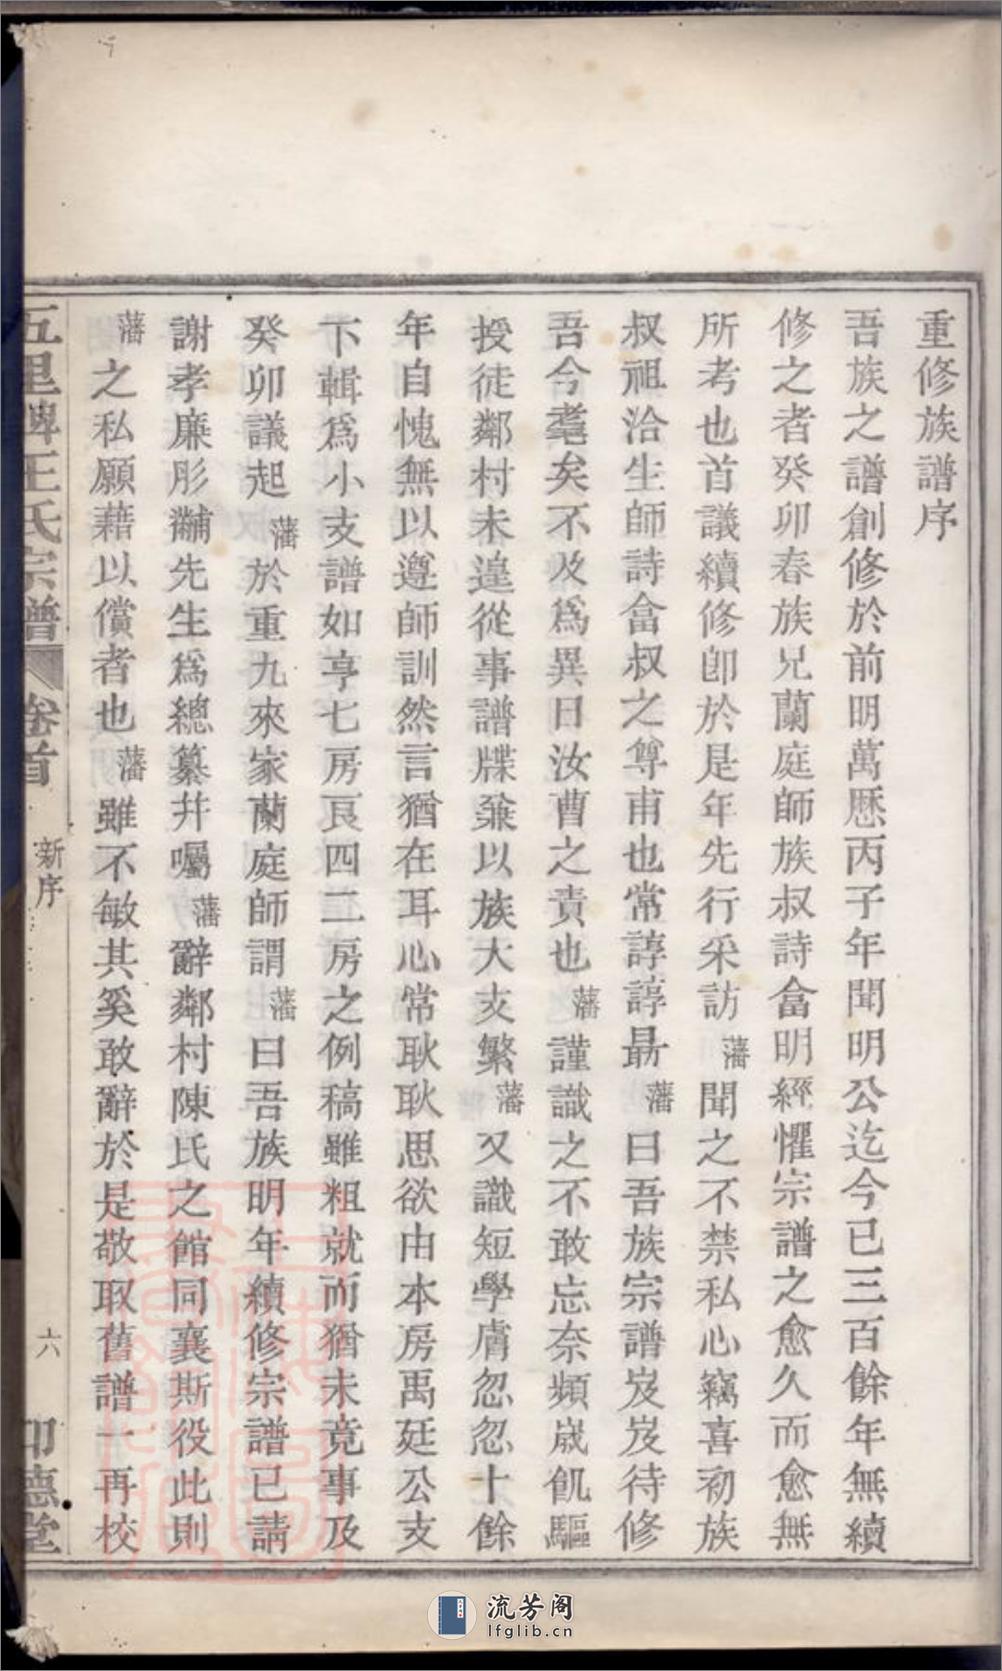 重修族譜序
吾族之譜創修於前明萬歷丙子年聞明公迄今已三百餘年無續
修之者癸卯春族兄蘭庭師族叔詩畬明經懼宗譜之愈久而愈無
所考也首議續修卽於是年先行采訪藩聞之不禁私心竊喜初族
叔祖洽生師詩畬叔之尊甫也常諄諄勗藩曰吾族宗譜岌岌待修
吾今耄矣不及爲異日汝曹之責也藩謹識之不敢忘奈頻歲飢驅
授徒鄰村未遑從事譜牒兼以族大支繁藩又識短學膚忽忽十餘
年自愧無以遵師訓然言猶在耳心常耿耿思欲由本房禹廷公支
下輯爲小支譜如亨七房良四二房之例稿雖粗就而猶未竟事及
癸卯議起藩於重九來家蘭庭師謂藩曰吾族明年續修宗譜已請
謝孝廉彤黼先生爲總纂幷囑藩辭鄰村陳氏之館同襄斯役此則
藩之私願藉以償者也藩雖不敏其奚敢辭於是敬取舊譜一再校
五里牌王氏宗譜 卷首 新序 六 印德堂
流芳阁
lfglib.cn